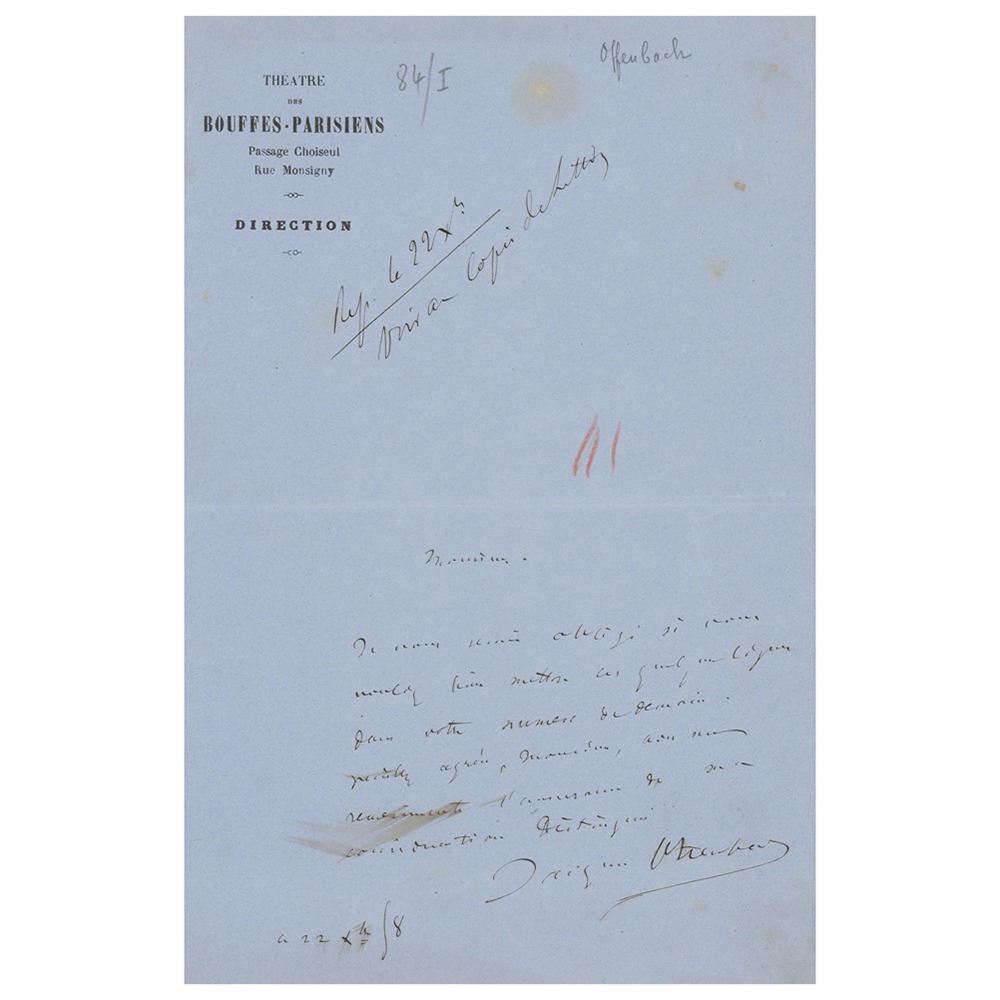 THÉATRE
DES
BOUFFES-PARISIENS
Passage Choiseul
Rue Monsigny
DIRECTION
84/I
Offenbach
Rep. le 22 Xbre
Voir au Copie de Lettres
Monsieur.
Je vous serais obligé si vous
voulez bien mettre ces quelques lignes
dans votre numéro de demain.
veuillez agréer, Monsieur, avec mes
remerciments l'assurance de ma
considération distinguée
Jacques Offenbach
ce 22 Xbre 58